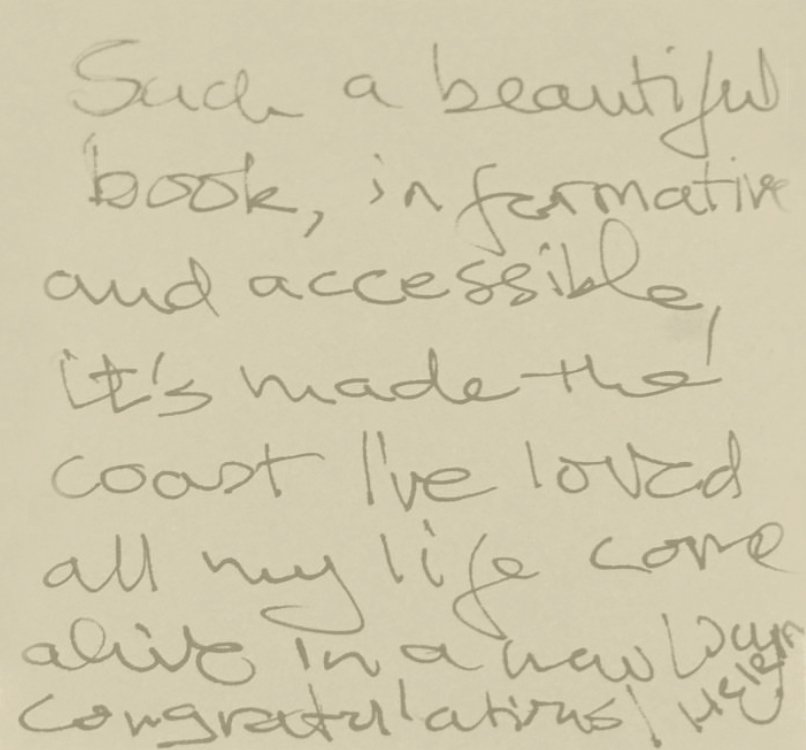 Such a beautiful
book, informative
and accessible,
it's made the
coast I've loved
all my life come
alive in a new way
Congratulations! Helen